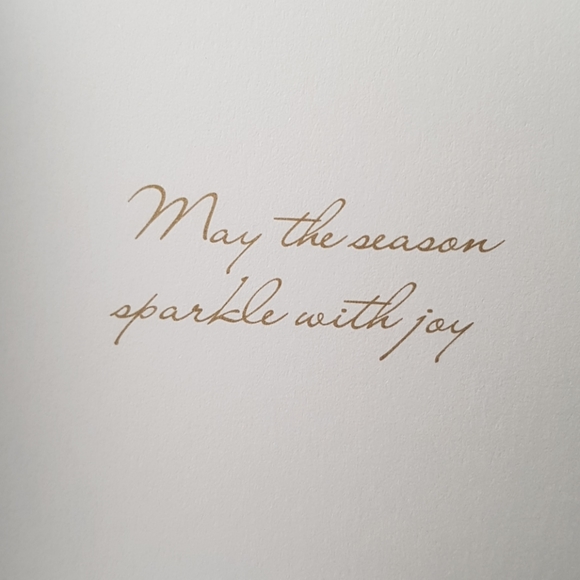 May the season
sparkle with joy